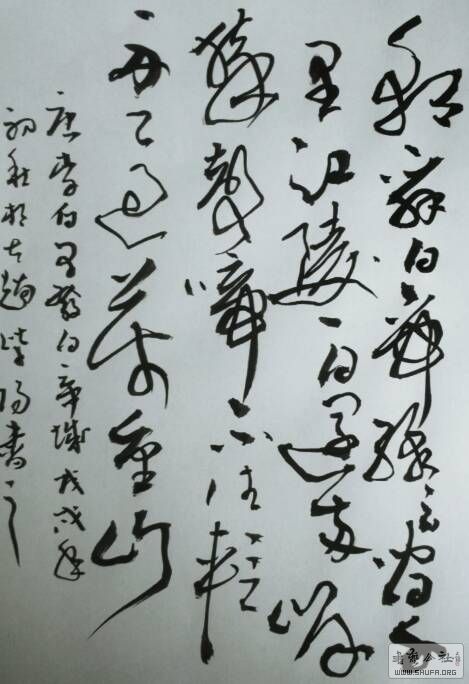 朝辞白帝彩云间千
里江陵一日還两岸
猿聲啼不住輕
舟已过万重山
唐李白早發白帝城戊戌年
初秋於趙書之
書藝公社
WWW.SHUFA.ORG